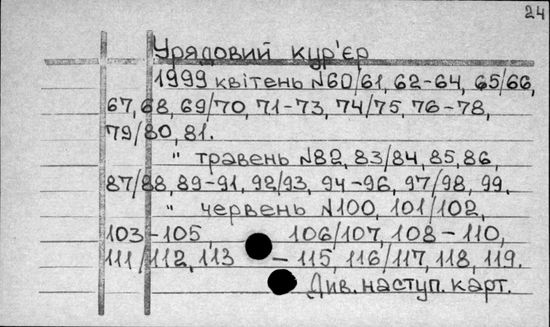 24
Урядовий кур'єр
1999 квітень №60/61, 62-64, 65/66,
67, 68, 69/70, 71-73, 74/75, 76-78,
79/80, 81.
" травень №82, 83/84, 85, 86,
87/88, 89-91, 92/93, 94-96, 97/98, 99.
" червень №100, 101/102,
103-105, 106/107, 108-110,
111/112, 113 - 115, 116/117, 118, 119.
Див. наступ. карт.